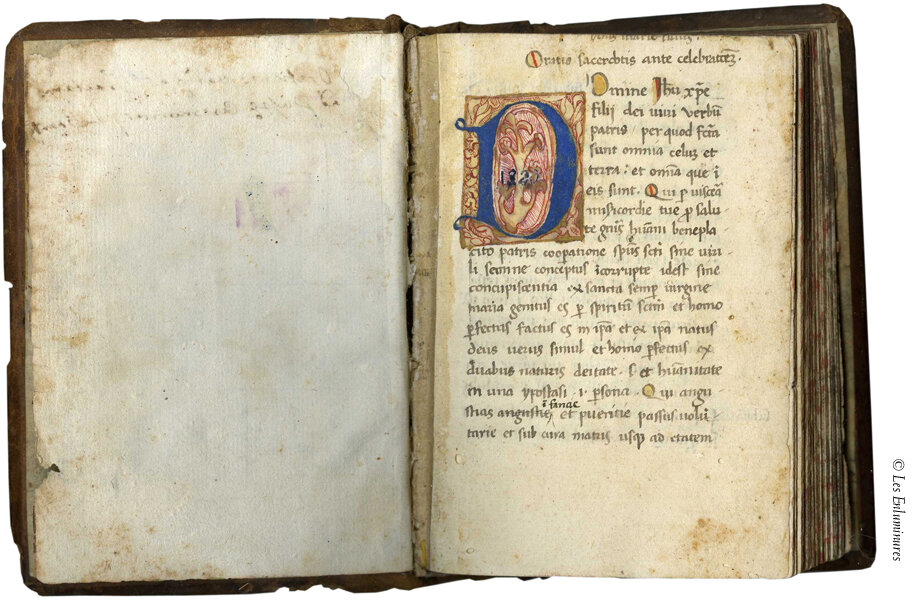 Oratio sacerdotis ante celebrationem.
Domine Jhu xpe
filij dei uiui verbũ
patris / per quod fcta
sunt omnia celuz et
terra: et omnia que ĩ
eis sunt. Qui p uisceã
misicordie tue p salu
te gnis hũani benepla
cito patris cooꝑatione spũs sctĩ sine uiri
li semine conceptus ĩcorrupte idest sine
concupiscentia ex sancta semꝑ uirgine
maria genitus es ꝑ spiritũ scm̃ et homo
ꝑfectus factus es in ipã et ex ipã natus
deus uerus simul et homo ꝑfectus ex
duabus naturis deitate .s. et hũanitate
in una ypostasi .i. ꝑsona. Qui angu
stias angustie ĩfancie et pueritie passus uolũ
tarie et sub cura matris usqꝫ ad etatem
© Les Enluminures